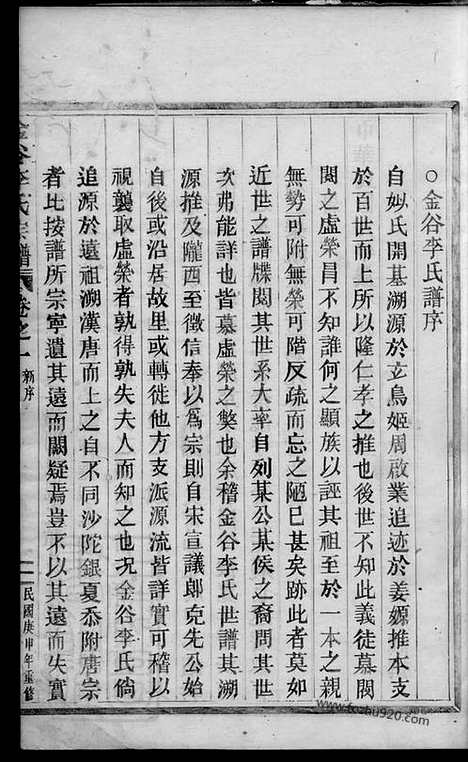 ○金谷李氏譜序
自姒氏開基溯源於玄鳥姬周啟業追迹於姜嫄推本支
於百世而上所以隆仁孝之推也後世不知此義徒慕閥
閱之虛榮昌不知誰何之顯族以誣其祖至於一本之親
無勢可附無榮可階反疏而忘之陋已甚矣跡此者莫如
近世之譜牒閱其世系大率自列某公某侯之裔問其世
次弗能詳也皆慕虛榮之獘也余稽金谷李氏世譜其溯
源推及隴西至徵信奉以為宗則自宋宣議郎克先公始
自後或沿居故里或轉徙他方支派源流皆詳實可稽以
視襲取虛榮者孰得孰失夫人而知之也况金谷李氏倘
追源於遠祖溯漢唐而上之自不同沙陀銀夏忝附唐宗
者比按譜所宗寧遺其遠而闕疑焉豈不以其遠而失實
金谷李氏宗譜
卷之一
新序
民國庚申年重修
www.fozhu920.com